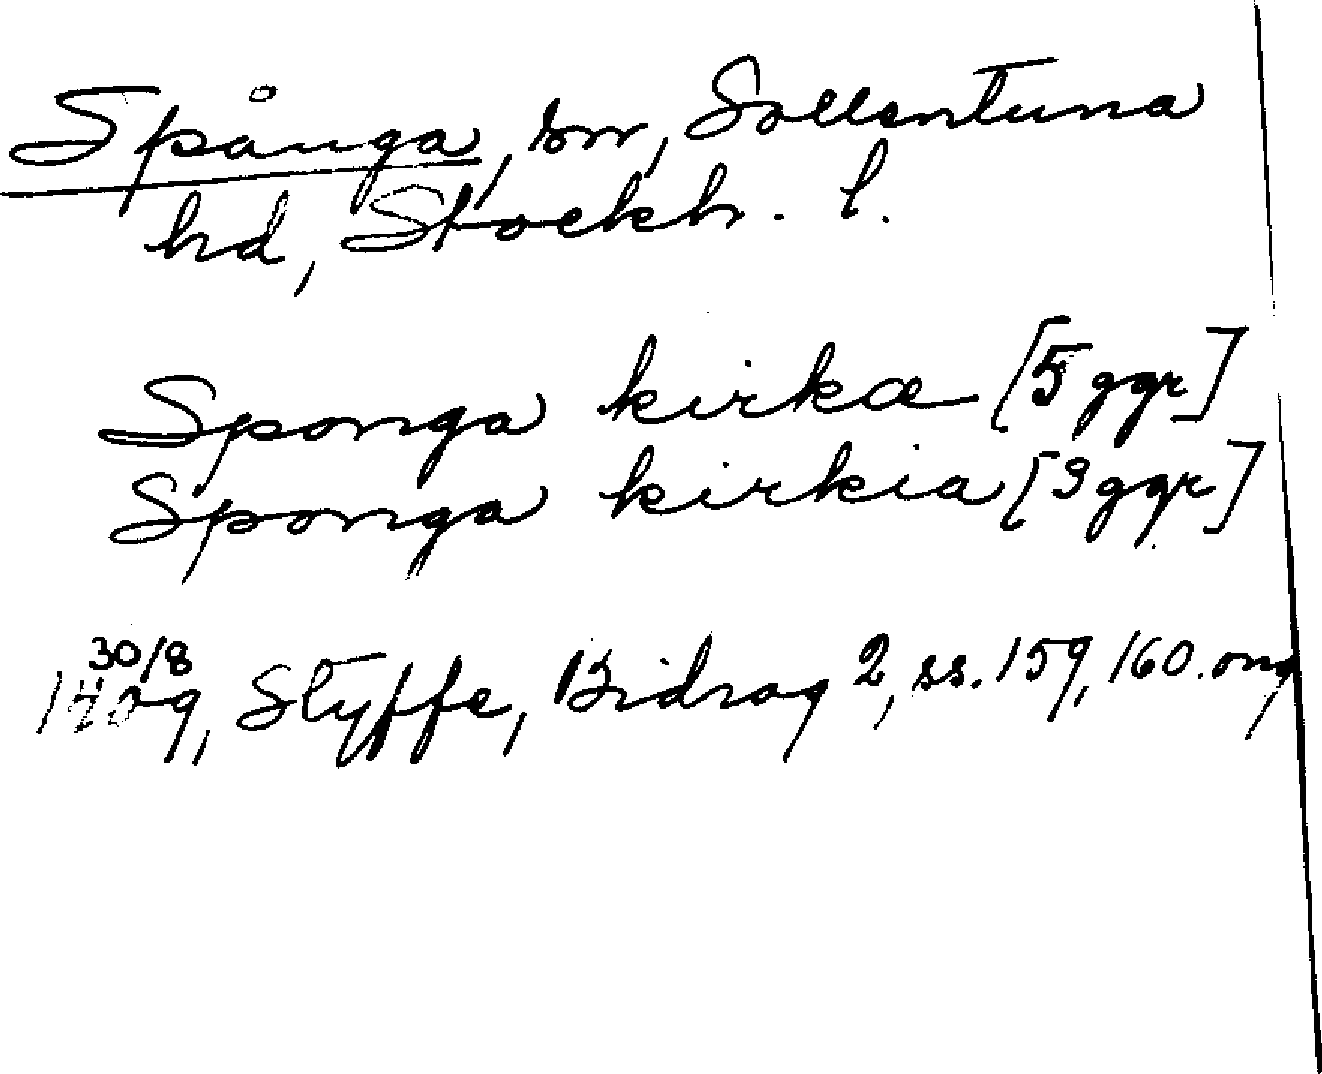 Spånga, sn, Sollentuna
hd, Stockh. l.
Sponga kirkæ [5 ggr]
Sponga kirkia [3 ggr]
30/8
1409, Styffe, Bidrag 2, ss. 159, 160. orig